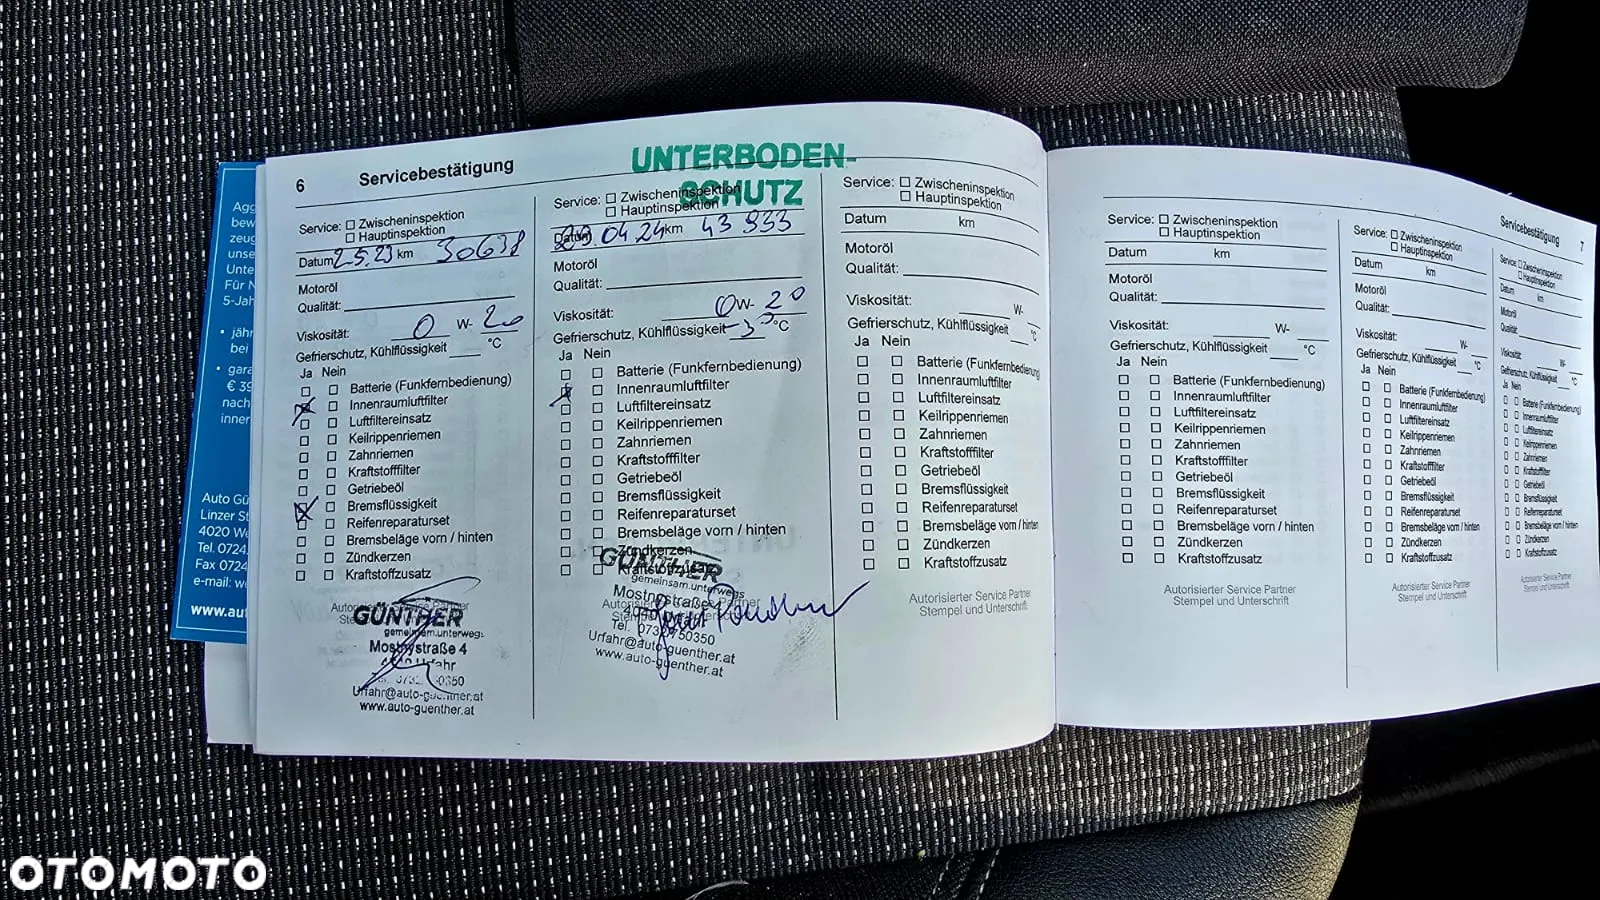 6 Servicebestätigung
UNTERBODEN-
SCHUTZ
Service: Zwischeninspektion
Hauptinspektion
Datum 2.5.23 km 30698
Motoröl
Qualität:
Viskosität: 0 W- 20
Gefrierschutz, Kühlflüssigkeit °C
Ja Nein
Batterie (Funkfernbedienung)
Innenraumluftfilter
Luftfiltereinsatz
Keilrippenriemen
Zahnriemen
Kraftstofffilter
Getriebeöl
Bremsflüssigkeit
Reifenreparaturset
Bremsbeläge vorn / hinten
Zündkerzen
Kraftstoffzusatz
Autorisierter Service Partner
GÜNTHER
gemeinsam.unterwegs
Mostnystraße 4
Urfahr
Urfahr@auto-guenther.at
www.auto-guenther.at
Service: Zwischeninspektion
Hauptinspektion
Datum 29.04.24 km 43 933
Motoröl
Qualität:
Viskosität: 0 W- 20
Gefrierschutz, Kühlflüssigkeit -35 °C
Ja Nein
Batterie (Funkfernbedienung)
Innenraumluftfilter
Luftfiltereinsatz
Keilrippenriemen
Zahnriemen
Kraftstofffilter
Getriebeöl
Bremsflüssigkeit
Reifenreparaturset
Bremsbeläge vorn / hinten
Zündkerzen
Kraftstoffzusatz
GÜNTHER
gemeinsam.unterwegs
Mostnystraße 4
Autorisierter Service Partner
Tel. 0732/750350
Urfahr@auto-guenther.at
www.auto-guenther.at
Service: Zwischeninspektion
Hauptinspektion
Datum km
Motoröl
Qualität:
Viskosität: W-
Gefrierschutz, Kühlflüssigkeit °C
Ja Nein
Batterie (Funkfernbedienung)
Innenraumluftfilter
Luftfiltereinsatz
Keilrippenriemen
Zahnriemen
Kraftstofffilter
Getriebeöl
Bremsflüssigkeit
Reifenreparaturset
Bremsbeläge vorn / hinten
Zündkerzen
Kraftstoffzusatz
Autorisierter Service Partner
Stempel und Unterschrift
Servicebestätigung 7
Service: Zwischeninspektion
Hauptinspektion
Datum km
Motoröl
Qualität:
Viskosität: W-
Gefrierschutz, Kühlflüssigkeit °C
Ja Nein
Batterie (Funkfernbedienung)
Innenraumluftfilter
Luftfiltereinsatz
Keilrippenriemen
Zahnriemen
Kraftstofffilter
Getriebeöl
Bremsflüssigkeit
Reifenreparaturset
Bremsbeläge vorn / hinten
Zündkerzen
Kraftstoffzusatz
Autorisierter Service Partner
Stempel und Unterschrift
Service: Zwischeninspektion
Hauptinspektion
Datum km
Motoröl
Qualität:
Viskosität: W-
Gefrierschutz, Kühlflüssigkeit °C
Ja Nein
Batterie (Funkfernbedienung)
Innenraumluftfilter
Luftfiltereinsatz
Keilrippenriemen
Zahnriemen
Kraftstofffilter
Getriebeöl
Bremsflüssigkeit
Reifenreparaturset
Bremsbeläge vorn / hinten
Zündkerzen
Kraftstoffzusatz
Autorisierter Service Partner
Stempel und Unterschrift
Service: Zwischeninspektion
Hauptinspektion
Datum km
Motoröl
Qualität:
Viskosität: W-
Gefrierschutz, Kühlflüssigkeit °C
Ja Nein
Batterie (Funkfernbedienung)
Innenraumluftfilter
Luftfiltereinsatz
Keilrippenriemen
Zahnriemen
Kraftstofffilter
Getriebeöl
Bremsflüssigkeit
Reifenreparaturset
Bremsbeläge vorn / hinten
Zündkerzen
Kraftstoffzusatz
Autorisierter Service Partner
Stempel und Unterschrift
Agg
bew
zeug
unse
Unte
Für N
5-Jah
• jähr
bei
• gara
€ 39
nach
inner
Auto Gü
Linzer St
4020 We
Tel. 0724
Fax 0724
e-mail: we
www.aut
OTOMOTO